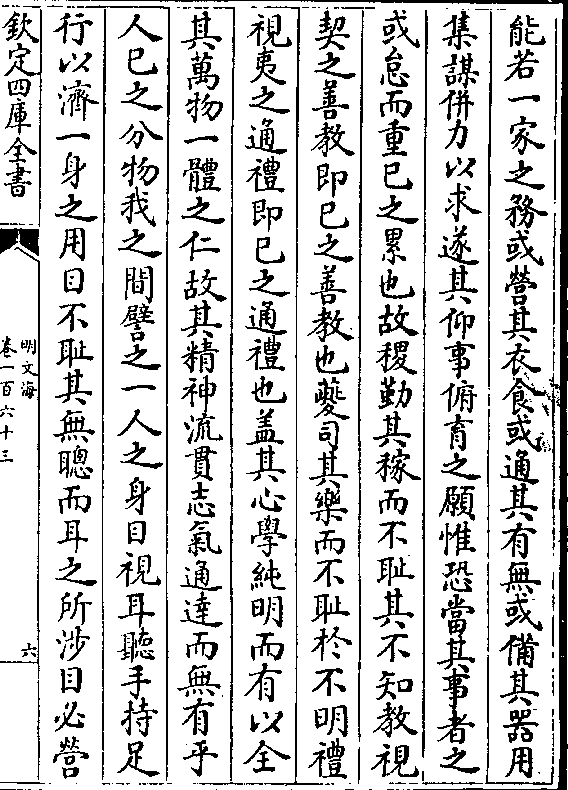 能若一家之務或營其衣食或通其有無或備其器用
集謀併力以求遂其仰事俯育之願惟恐當其事者之
或怠而重已之累也故稷勤其稼而不耻其不知教視
契之善教即已之善教也夔司其樂而不耻於不明禮
視夷之通禮即已之通禮也盖其心學純明而有以全
其萬物一體之仁故其精神流貫志氣通達而無有乎
人已之分物我之間譬之一人之身目視耳聽手持足
行以濟一身之用目不耻其無聰而耳之所涉目必營
欽定四庫全書
明文海
卷一百六十三
六